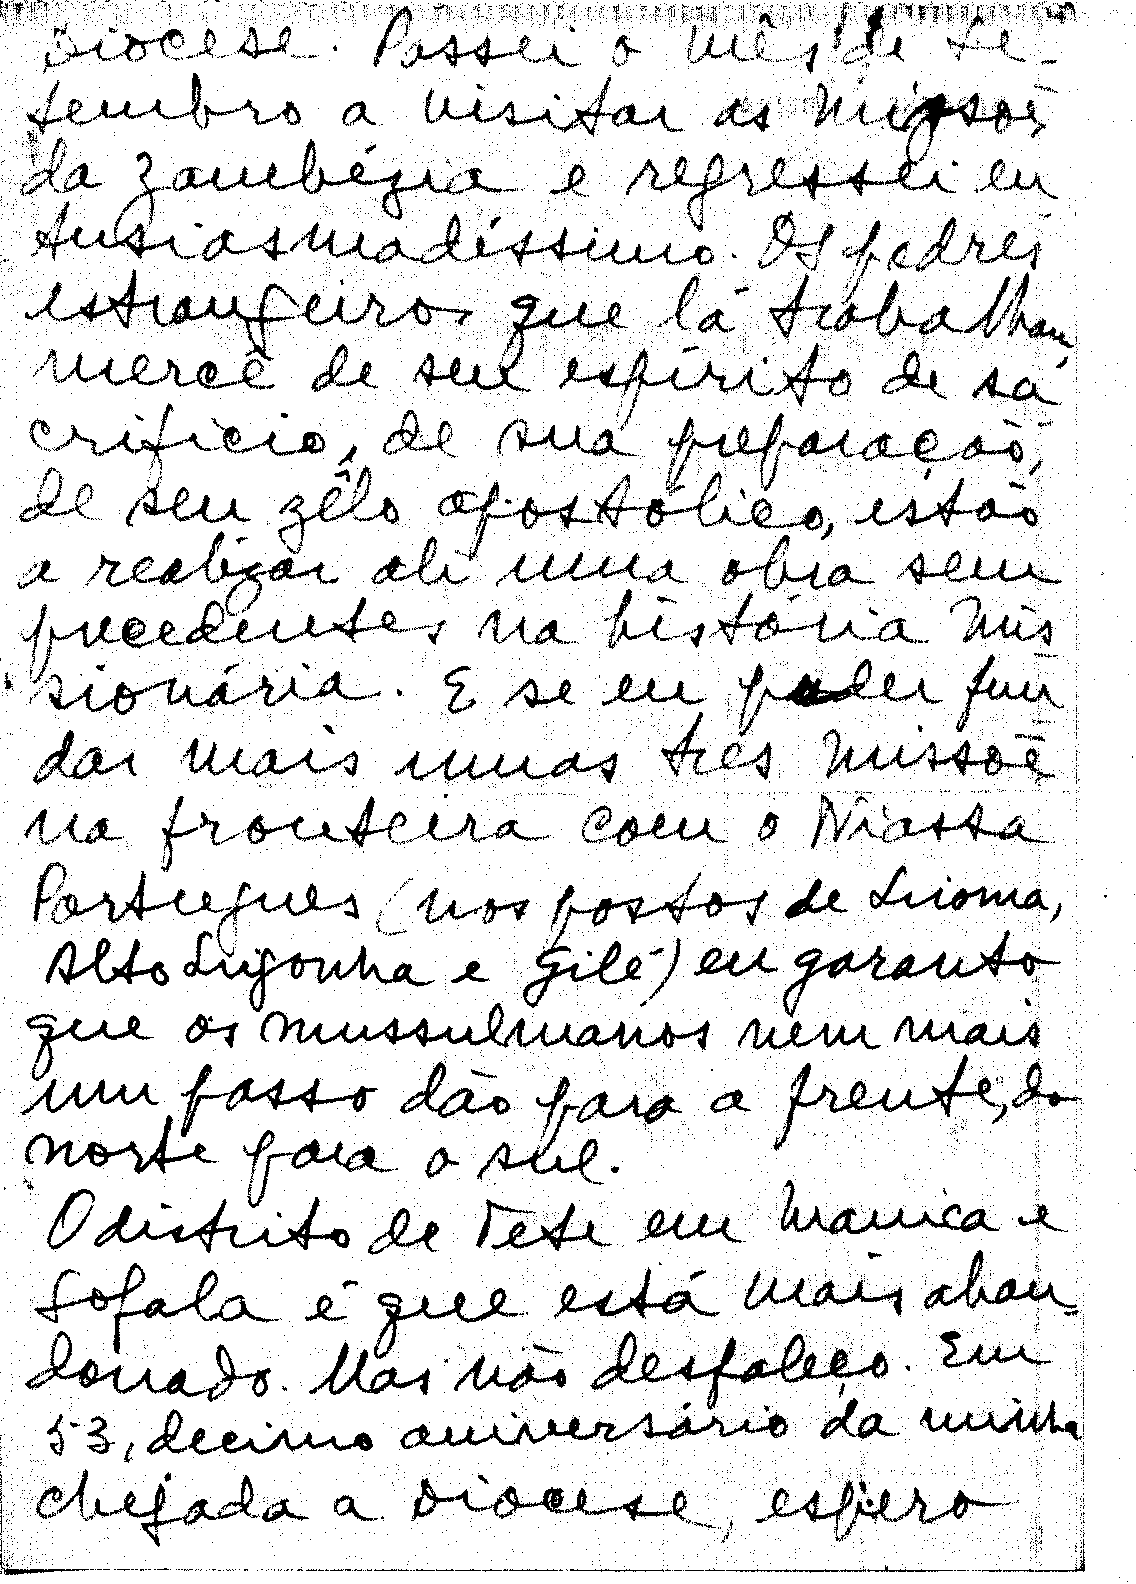 Diocese. Passei o mês de Se-
tembro a visitar as missões
da Zambézia e regressei en
tusiasmadíssimo. Os padres
estrangeiros que lá trabalham,
mercê de seu espírito de sa
crifício, de sua preparação,
de seu zêlo apostólico, estão
a realizar ali uma obra sem
precedentes na história mis
sionária. E se eu puder fun
dar mais umas tres missões
na fronteira com o Niassa
Portugues (nos postos de Lioma,
Alto Ligonha e Gilé) eu garanto
que os mussulmanos nem mais
um passo dão para a frente, do
norte para o sul.
O distrito de Tete em Manica e
Sofala é que está mais aban-
donado. Mas não desfaleço. Em
53, decimo aniversário da minha
chegada a Diocese, espero